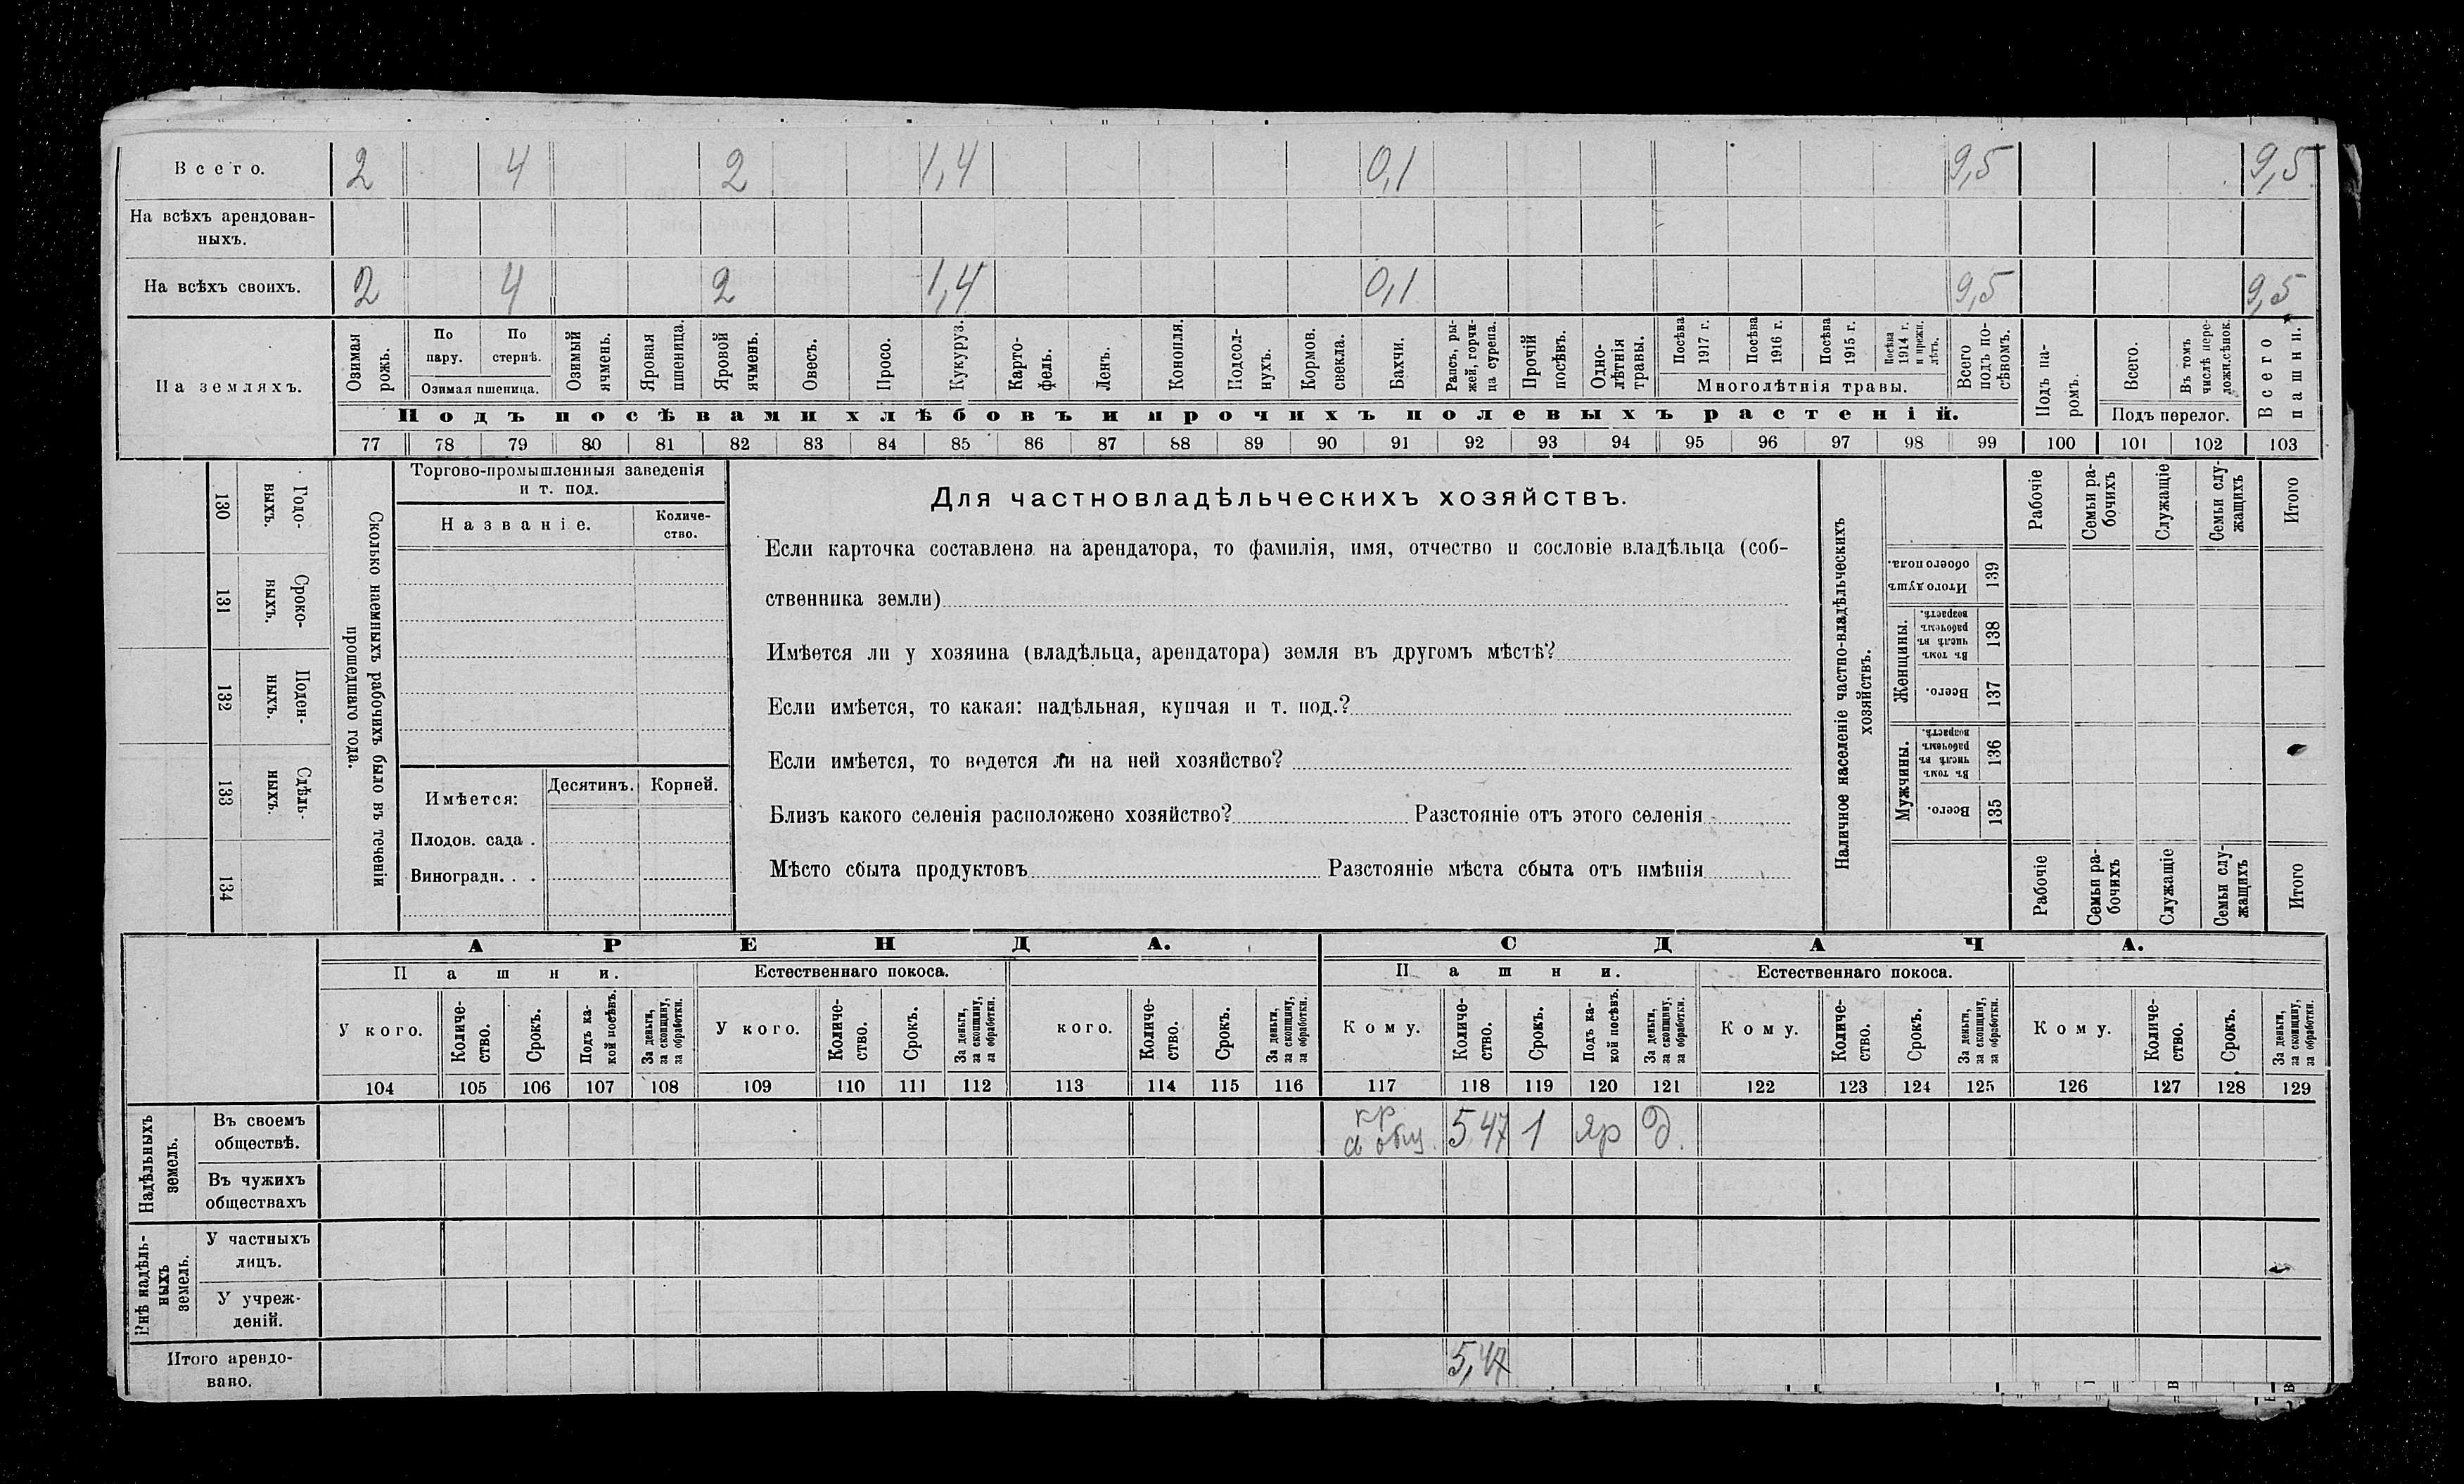 Всего. 2 4 2 1,4 0,1 9,5 9,5
На всѣхъ арендован-
ныхъ.
На всѣхъ своихъ. 2 4 2 1,4 0,1 9,5 9,5
На земляхъ.
Озимая рожь.
По пару.
По стернѣ.
Озимая пшеница.
Озимый ячмень.
Яровая пшеница.
Яровой ячмень.
Овесъ.
Просо.
Кукуруз.
Карто-
фель.
Ленъ.
Конопля.
Подсол-
нухъ.
Кормов. свекла.
Бахчи.
Рапсъ, ры-
жей, горчи-
ца сурепа.
Прочій посѣвъ.
Одно-
лѣтнія травы.
Посѣва 1917 г.
Посѣва 1916 г.
Посѣва 1915 г.
Посѣва 1914 г. и прежн. лѣтъ.
Многолѣтнія травы.
Всего подъ по-
сѣвомъ.
Подъ па-
ромъ.
Всего.
Въ томъ числѣ пере-
ложн.сѣнок.
Подъ перелог.
Всего пашни.
Подъ посѣвами хлѣбовъ и прочихъ полевыхъ растеній.
77 78 79 80 81 82 83 84 85 86 87 88 89 90 91 92 93 94 95 96 97 98 99 100 101 102 103
Сколько наемныхъ рабочихъ было въ теченіи
прошедшаго года.
Годо-
выхъ.
130
Сроко-
выхъ.
131
Поден-
ныхъ.
132
Сдѣль-
ныхъ.
133
134
Торгово-промышленныя заведенія
и т. под.
Названіе.
Количе-
ство.
Имѣется:
Десятинъ. Корней.
Плодов. сада .
Виноградн. . .
Для частновладѣльческихъ хозяйствъ.
Если карточка составлена на арендатора, то фамилія, имя, отчество и сословіе владѣльца (соб-
ственника земли)
Имѣется ли у хозяина (владѣльца, арендатора) земля въ другомъ мѣстѣ?
Если имѣется, то какая: надѣльная, купчая и т. под.?
Если имѣется, то ведется ли на ней хозяйство?
Близъ какого селенія расположено хозяйство? Разстояніе отъ этого селенія
Мѣсто сбыта продуктовъ Разстояніе мѣста сбыта отъ имѣнія
Наличное населеніе частно-владѣльческихъ
хозяйствъ.
Рабочіе
Семьи ра-
бочихъ
Служащіе
Семьи слу-
жащихъ
Итого
Итого душъ обоего пола.
139
Женщины.
Въ томъ числѣ въ рабочемъ возрастѣ.
138
Всего.
137
Мужчины.
Въ томъ числѣ въ рабочемъ возрастѣ.
136
Всего.
135
Рабочіе
Семьи ра-
бочихъ
Служащіе
Семьи слу-
жащихъ
Итого
АРЕНДА. СДАЧА.
Пашни. Естественнаго покоса. Пашни. Естественнаго покоса.
У кого.
Количе-
ство.
Срокъ.
Подъ ка-
кой посѣвъ.
За деньги,
за скопщину,
за обработки.
У кого.
Количе-
ство.
Срокъ.
За деньги,
за скопщину,
за обработки.
кого.
Количе-
ство.
Срокъ.
За деньги,
за скопщину,
за обработки.
Кому.
Количе-
ство.
Срокъ.
Подъ ка-
кой посѣвъ.
За деньги,
за скопщину,
за обработки.
Кому.
Количе-
ство.
Срокъ.
За деньги,
за скопщину,
за обработки.
Кому.
Количе-
ство.
Срокъ.
За деньги,
за скопщину,
за обработки.
104 105 106 107 108 109 110 111 112 113 114 115 116 117 118 119 120 121 122 123 124 125 126 127 128 129
Надѣльныхъ
земель.
Въ своемъ
обществѣ.
кр
общ. 5 47 1 яр д.
Въ чужихъ
обществахъ
Внѣ надѣль-
ныхъ
земель.
У частныхъ
лицъ.
У учреж-
деній.
Итого арендо-
вано.
5,47